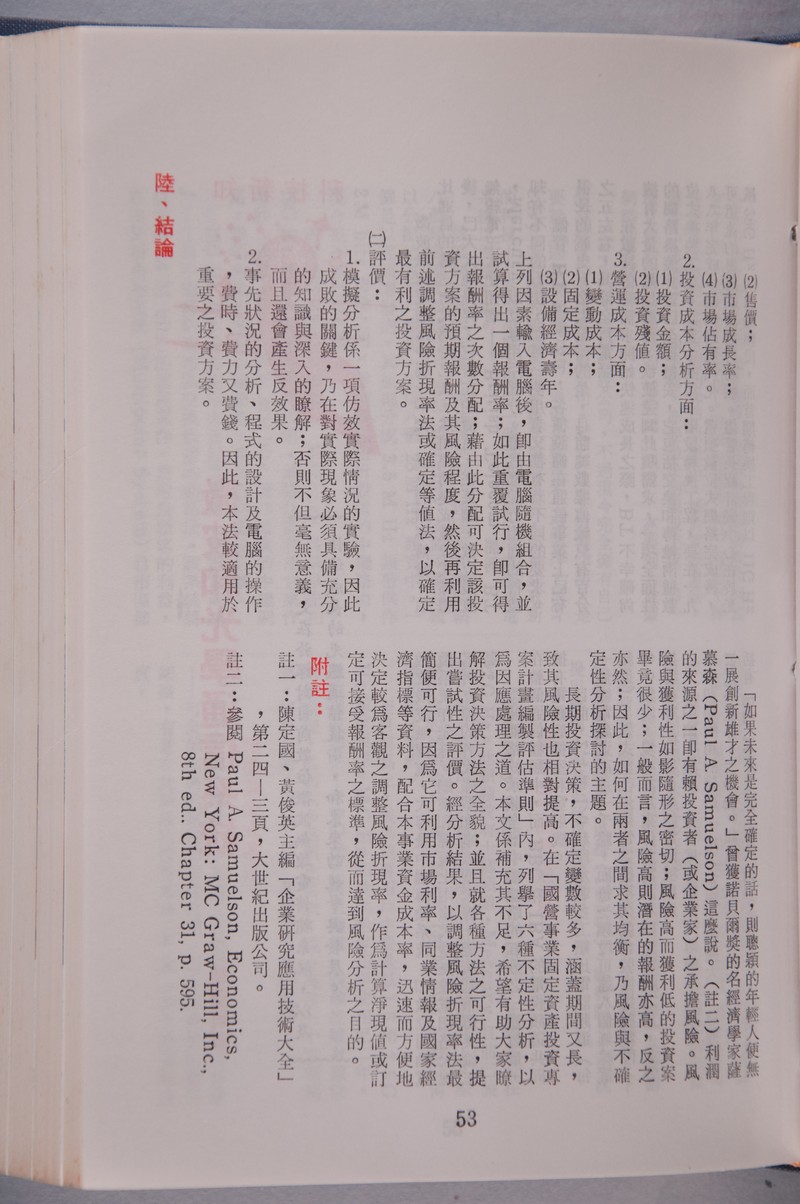 ⑵售價；
⑶市場成長率；
⑷市場佔有率。
2.投資成本分析方面：
⑴投資金額；
⑵投資殘值。
3.營運成本方面：
⑴變動成本；
⑵固定成本；
⑶設備經濟壽年。
上列因素輸入電腦後，卽由電腦隨機組合，並
試算得出一個報酬率；如此重覆試行，卽可得
出報酬率之次數分配；藉由此分配可決定該投
資方案的預期報酬及其風險程度，然後再利用
前述調整風險折現率法或確定等値法，以確定
最有利之投資方案。
㈡評價：
1.模擬分析係一項仿效實際情況的實驗，因此
成敗的關鍵，乃在對實際現象必須具備充分
的知識與深入的瞭解；否則不但毫無意義，
而且還會產生反效果。
2.事先狀況的分析、程式的設計及電腦的操作
，費時、費力又費錢。因此，本法較適用於
重要之投資方案。
陸、結論
「如果未來是完全確定的話，則聰穎的年輕人便無
一展創新雄才之機會。」曾獲諾貝爾獎的名經濟學家薩
慕森（Paul A. Samuelson）這麼說。（註二）利潤
的來源之一卽有賴投資者（或企業家）之承擔風險。風
險與獲利性如影隨形之密切；風險高而獲利低的投資案
畢竟很少；一般而言，風險高則潛在的報酬亦高，反之
亦然；因此，如何在兩者之間求其均衡，乃風險與不確
定性分析探討的主題。
長期投資決策，不確定變數較多，涵蓋期間又長，
致其風險性也相對提高。在「國營事業固定資產投資專
案計畫編製評估準則」內，列擧了六種不定性分析，以
爲因應處理之道。本文係補充其不足，希望有助大家瞭
解投資決策方法之全貌；並且就各種方法之可行性，提
出嘗試性之評價。經分析結果，以調整風險折現率法最
簡便可行，因爲它可利用市場利率、同業情報及國家經
濟指標等資料，配合本事業資金成本率，迅速而方便地
決定較爲客觀之調整風險折現率，作爲計算淨現値或訂
定可接受報酬率之標準，從而達到風險分析之目的。
附註：
註一：陳定國、黃俊英主編「企業研究應用技術大全」
，第二四—三頁，大世紀出版公司。
註二：參閱 Paul A. Samuelson, Economics,
New York: MC Graw-Hill, Inc.,
8th ed.. Chapter 31, p. 595.
53